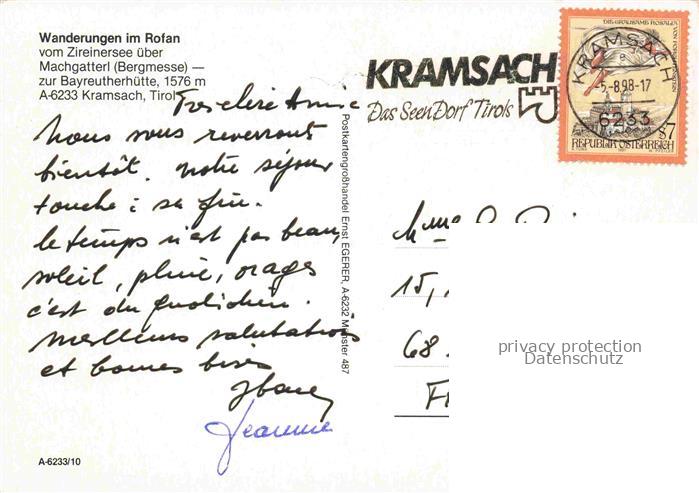 Wanderungen im Rofan
vom Zireinersee über
Machgatterl (Bergmesse) —
zur Bayreutherhütte, 1576 m
A-6233 Kramsach, Tirol
Très chère Amie
Nous vous reverrons
bientôt. notre séjour
touche à sa fin.
le temps n'est pas beau,
soleil, pluie, orages
c'est du quotidien.
meilleures salutations
et bonnes bises
Jeannine
A-6233/10
Postkartengroßhandel Ernst EGERER, A-6232 Münster 487
KRAMSACH
Das SeenDorf Tirols
DIE GRAUSAME ROSALIA VON FORCHTENSTEIN
KRAMSACH
-5.-8.98-17
6233
S7
REPUBLIK ÖSTERREICH
Mme
15,
68
F
privacy protection
Datenschutz